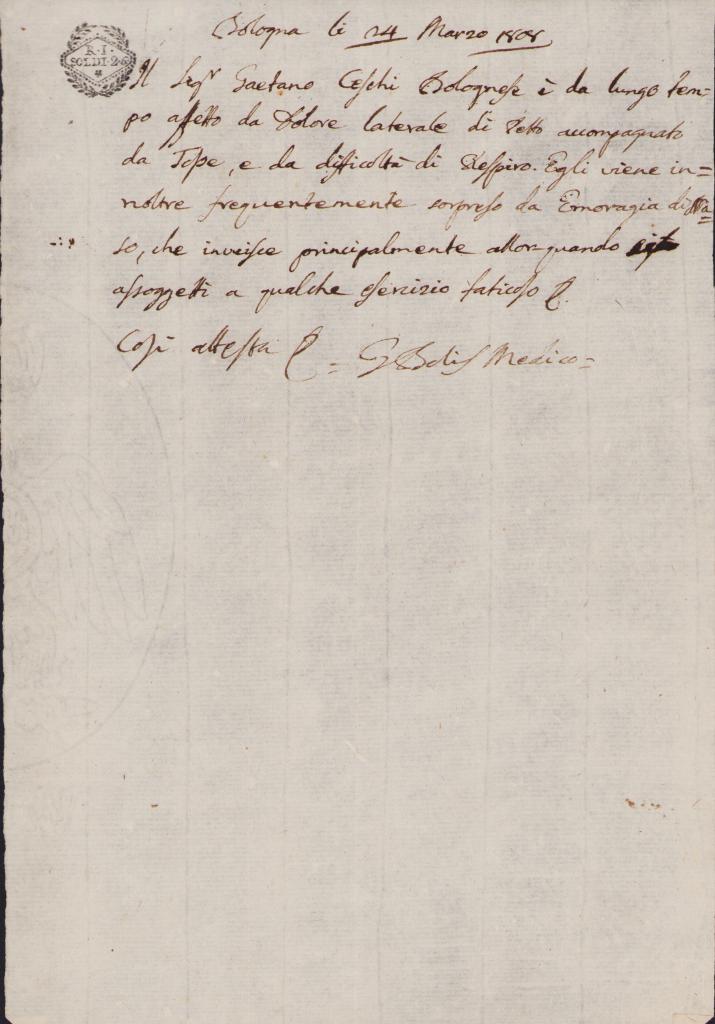 Bologna li 24 Marzo 1808
R. I.
SOLDI. 2.
Il Sigr Gaetano Ceschi Bolognese è da lungo tem=
po affetto da Dolore laterale di Petto accompagnato
da Tosse, e da difficoltà di Respiro. Egli viene in=
noltre frequentemente sorpreso da Emoragia di Na=
so, che inveisce principalmente allor quando
assoggetti a qualche esercizio faticoso
Così attesta = Medico =